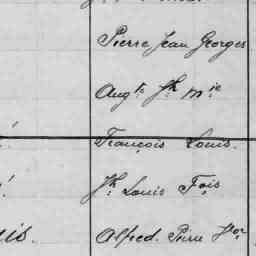 Pierre Jean Georges
Augte Jh Mie
François Louis.
Jh Louis Fois
is. Alfred Pierre Vor